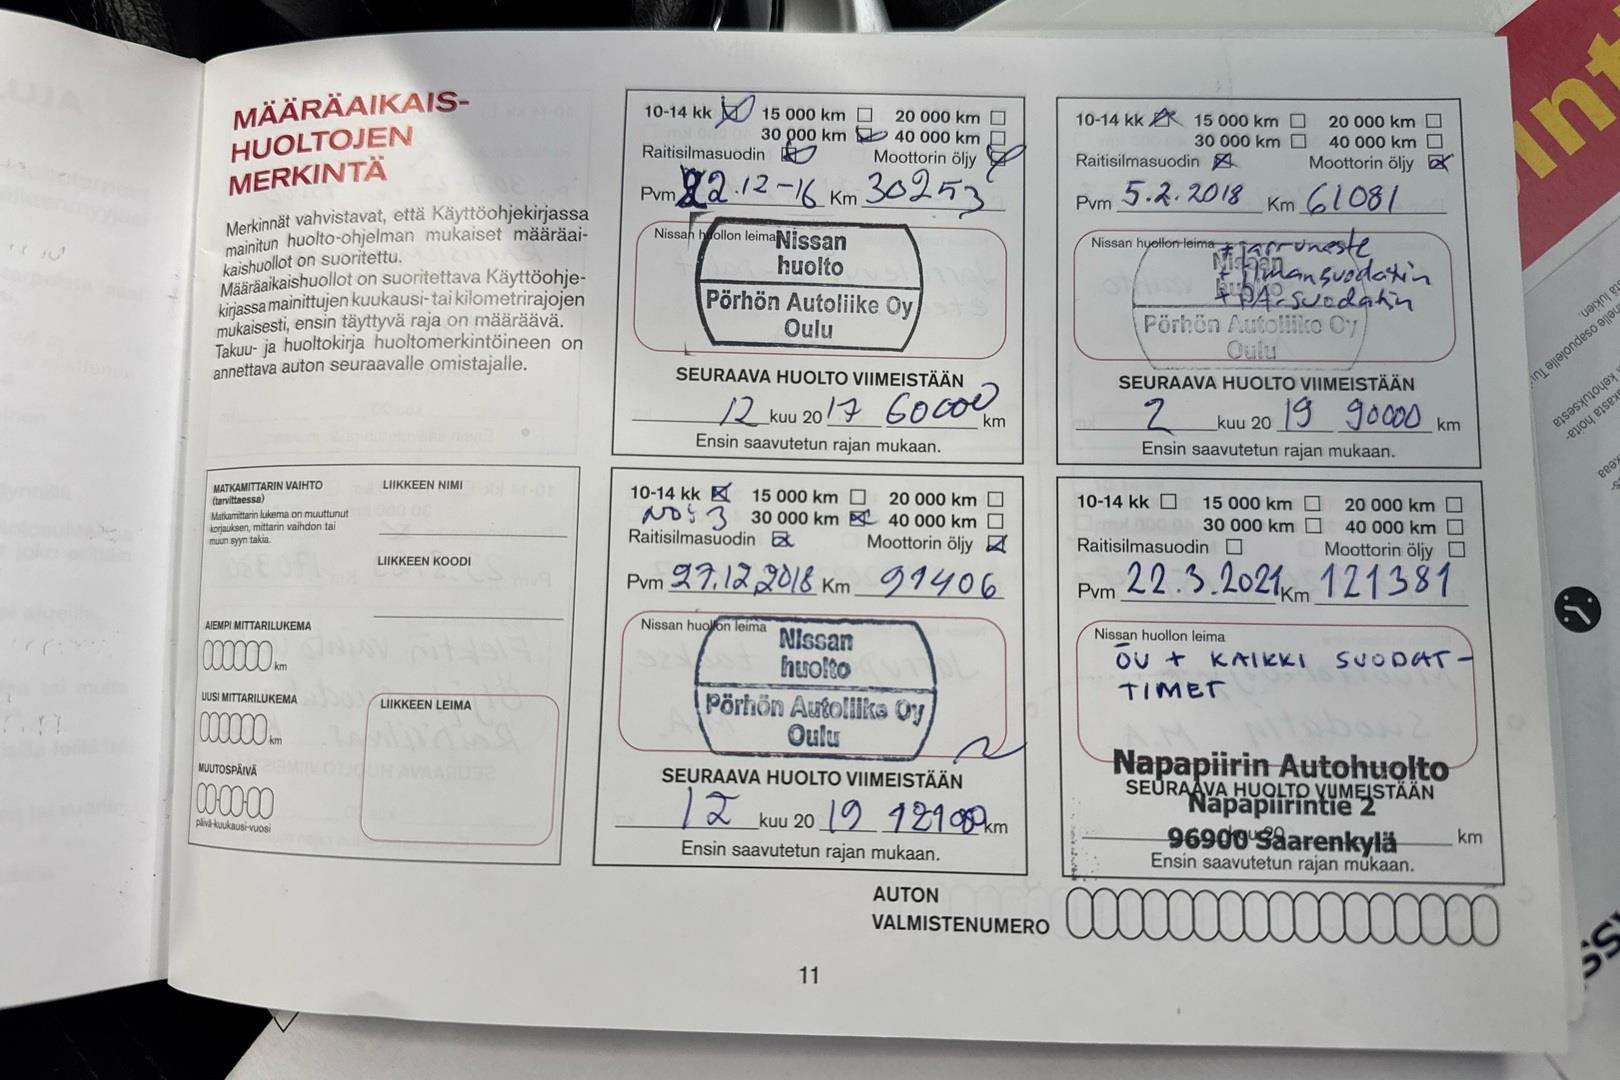 MÄÄRÄAIKAIS-
HUOLTOJEN
MERKINTÄ
Merkinnät vahvistavat, että Käyttöohjekirjassa
mainitun huolto-ohjelman mukaiset määräai-
kaishuollot on suoritettu.
Määräaikaishuollot on suoritettava Käyttöohje-
kirjassa mainittujen kuukausi- tai kilometrirajojen
mukaisesti, ensin täyttyvä raja on määräävä.
Takuu- ja huoltokirja huoltomerkintöineen on
annettava auton seuraavalle omistajalle.
MATKAMITTARIN VAIHTO
(tarvittaessa)
Matkamittarin lukema on muuttunut
korjauksen, mittarin vaihdon tai
muun syyn takia.
LIIKKEEN NIMI
LIIKKEEN KOODI
AIEMPI MITTARILUKEMA
km
UUSI MITTARILUKEMA
km
MUUTOSPÄIVÄ
päivä-kuukausi-vuosi
LIIKKEEN LEIMA
10-14 kk 15 000 km 20 000 km
30 000 km 40 000 km
Raitisilmasuodin Moottorin öljy
Pvm 22.12-16 Km 30253
Nissan huollon leima
Nissan
huolto
Pörhön Autoliike Oy
Oulu
SEURAAVA HUOLTO VIIMEISTÄÄN
12 kuu 20 17 60000 km
Ensin saavutetun rajan mukaan.
10-14 kk 15 000 km 20 000 km
30 000 km 40 000 km
Raitisilmasuodin Moottorin öljy
Pvm 5.2.2018 Km 61081
Nissan huollon leima
+ jarruneste
+ ilmansuodatin
+ PA-suodatin
Nissan
huolto
Pörhön Autoliike Oy
Oulu
SEURAAVA HUOLTO VIIMEISTÄÄN
2 kuu 20 19 90000 km
Ensin saavutetun rajan mukaan.
10-14 kk 15 000 km 20 000 km
30 000 km 40 000 km
Raitisilmasuodin Moottorin öljy
Pvm 27.12.2018 Km 91406
Nissan huollon leima
Nissan
huolto
Pörhön Autoliike Oy
Oulu
SEURAAVA HUOLTO VIIMEISTÄÄN
12 kuu 20 19 km
Ensin saavutetun rajan mukaan.
10-14 kk 15 000 km 20 000 km
30 000 km 40 000 km
Raitisilmasuodin Moottorin öljy
Pvm 22.3.2021 Km 121381
Nissan huollon leima
ÖV + KAIKKI SUODAT-
TIMET
Napapiirin Autohuolto
SEURAAVA HUOLTO VIIMEISTÄÄN
Napapiirintie 2
96900 Saarenkylä
kuu 20 km
Ensin saavutetun rajan mukaan.
AUTON
VALMISTENUMERO
11